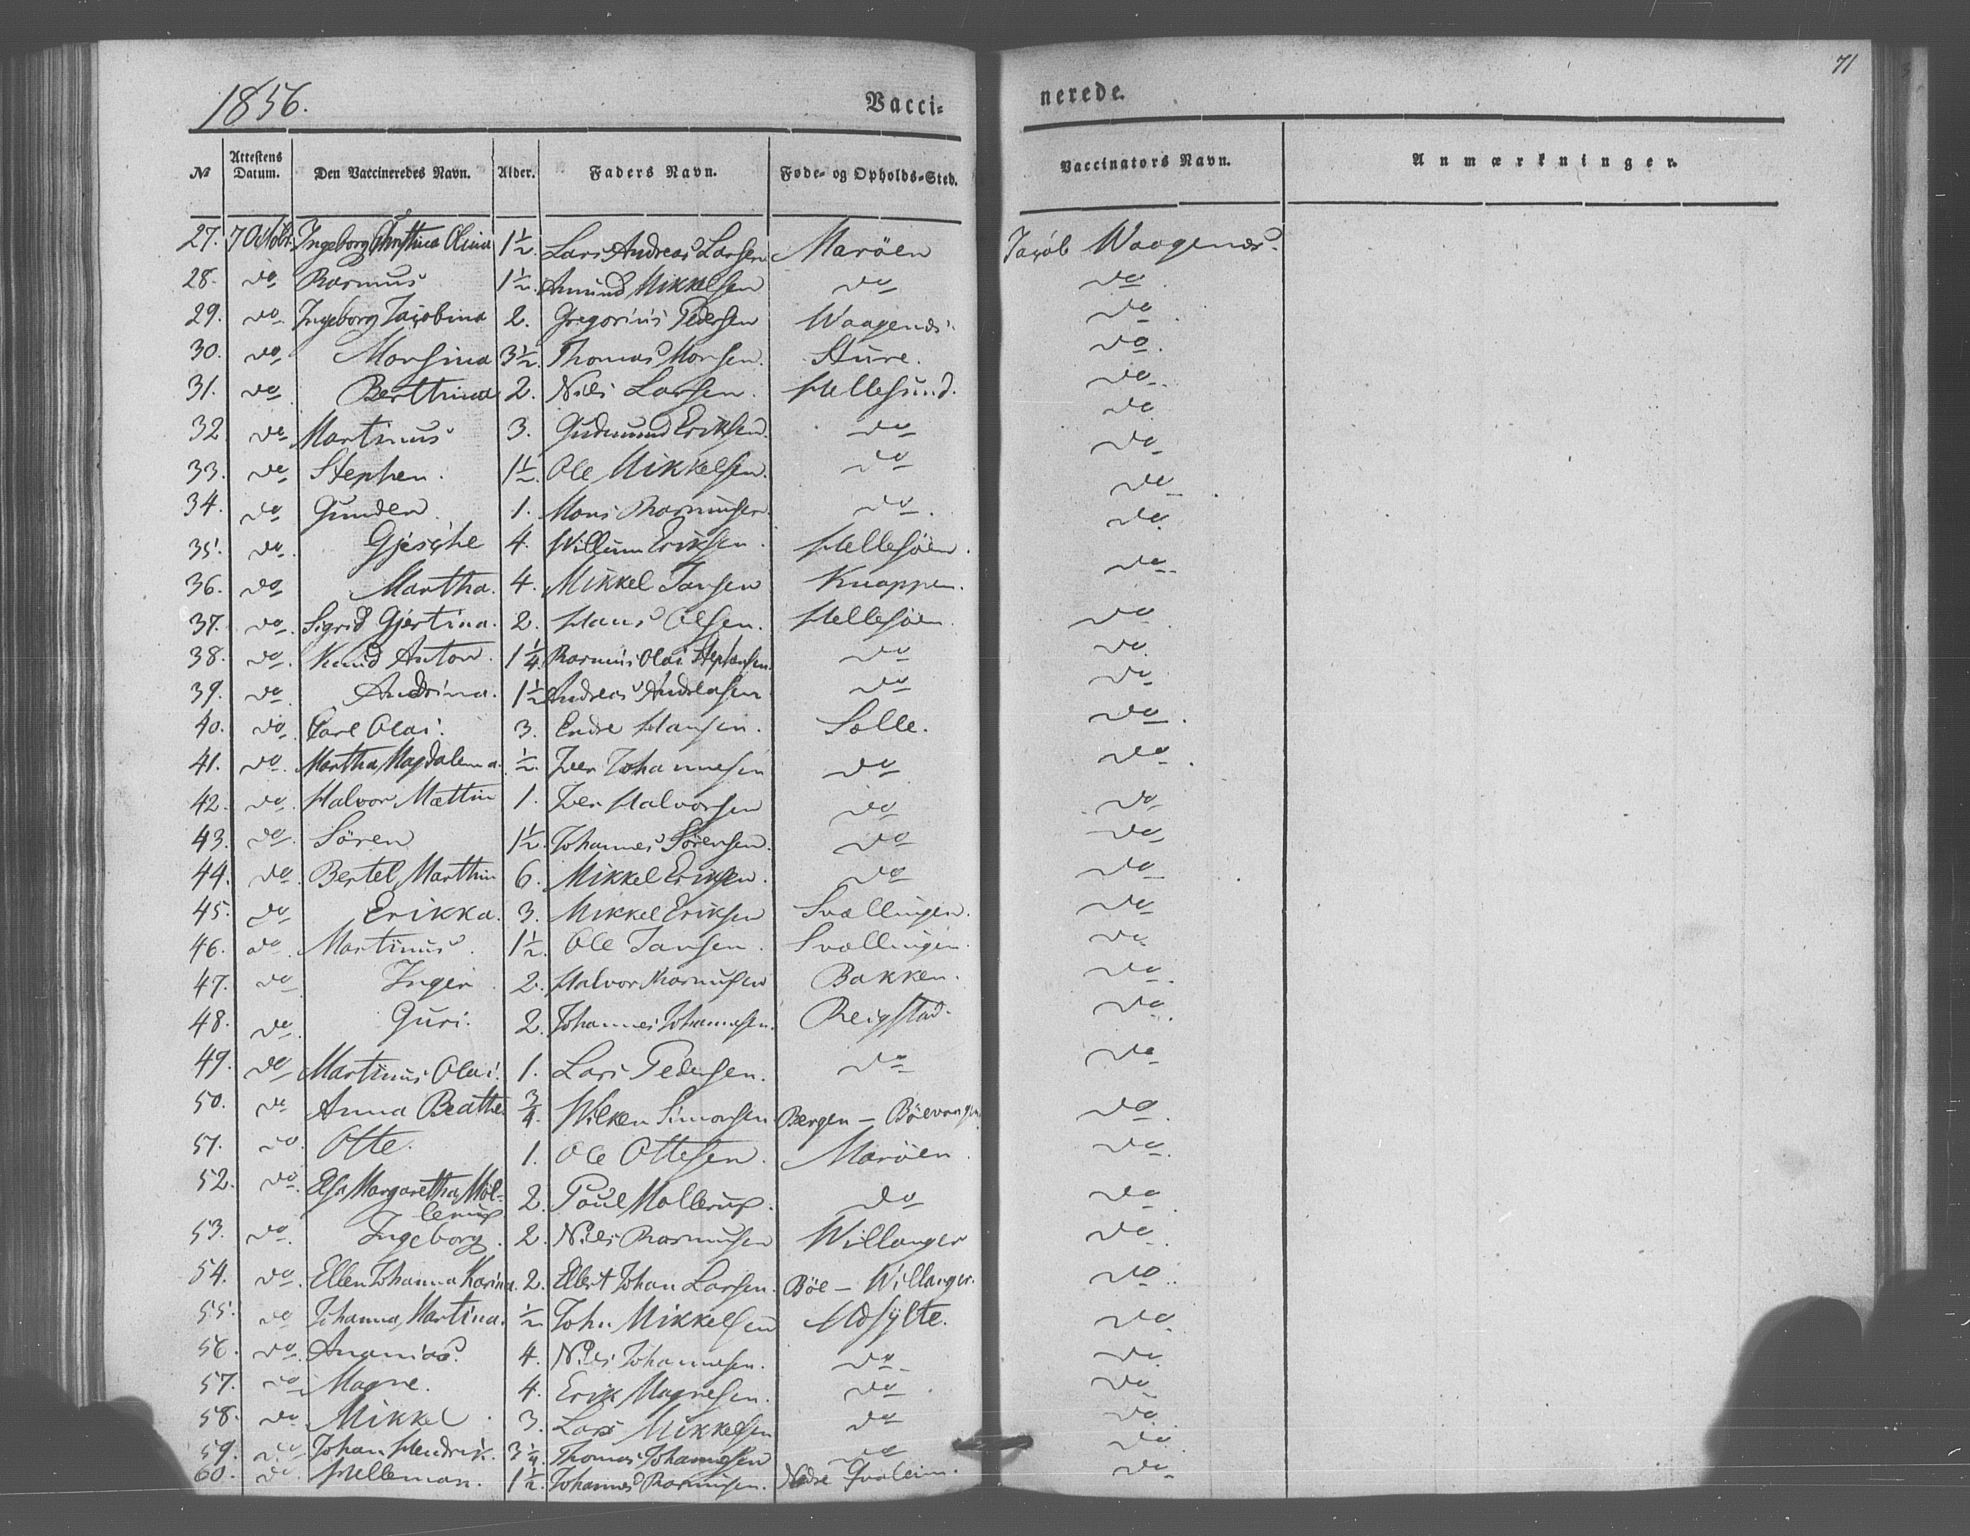 71
1856. Vacci- nerede.
№ Attestens Datum. Den Vaccineredes Navn. Alder. Faders Navn. Føde- og Opholds-Sted. Vaccinators Navn. Anmærkninger.
27. 7 Octobr. Ingeborg Christina Olina 1½. Lars Andreas Larsen Maröen Jacob Waagenes.
28. do Rasmus 1½. Amund Mikkelsen do do
29. do Ingeborg Jacobina 2. Gregorius Pedersen Waagenes. do
30. do Monsina 3½. Thomas Monsen. Sture. do
31. do Berthina 2. Nils Larsen. Hellesund. do
32 do Martinus 3. Gudmund Eriksen. do do
33. do Stephen. 1½. Ole Mikkelsen. do do
34. do Gunder 1. Mons Rasmussen. do do
35. do Gjesche 4. Willum Eriksen. Hellesöen. do
36. do Martha. 4. Mikkel Jansen Knappen. do
37. do Sigrid Gjertina. 2. Hans Olsen. Hellesöen. do
38. do Knud Anton. 1¼. Rasmus Olai Stephansen. do do
39. do Andrina. 1½ Andreas Andreasen do do
40. do Carl Olai. 3. Endre Hansen. Solle. do
41. do Martha Magdalena. ½. Iver Johannesen do do
42. do Halvor Mathin 1. Iver Halvorsen do do
43. do Sören 1½. Johannes Sörensen. do do
44. do Bertel Marthin 6. Mikkel Eriksen. do do
45. do Erikka. 3. Mikkel Eriksen Svællingen. do
46. do Martinus. 1½. Ole Jansen. Svællingen. do
47. do Inger 2. Halvor Rasmusen Bakken. do
48. do Guri. 2. Johannes Johannesen. Reigstad. do
49. do Martinus Olai. 1. Lars Pedersen. do do
50. do Anna Beathe ¾. Wilken Simonsen Bergen — Böevangen do
51. do Otte. 1. Ole Ottesen. Maröen. do
52. do Elsa Margaretha Mol-
lerup 2. Poul Mollerup. do do
53. do Ingeborg. 2. Nils Rasmusen Willanger do
54. do Ellen Johanna Karina. 2. Ellert Johan Larsen. Böe — Willanger. do
55. do Johanna Martina. ½ John Mikkelsen Udsylte. do
56. do Ananias. 4. Nils Johannesen. do do
57. do Magne. 4. Erik Magnesen. do do
58. do Mikkel 3. Lars Mikkelsen do do
59. do Johan Hendrik. 3¼. Thomas Johannesen do do
60. do Helleman. 1½. Johannes Rasmusen. Nedre Qvaleim. do